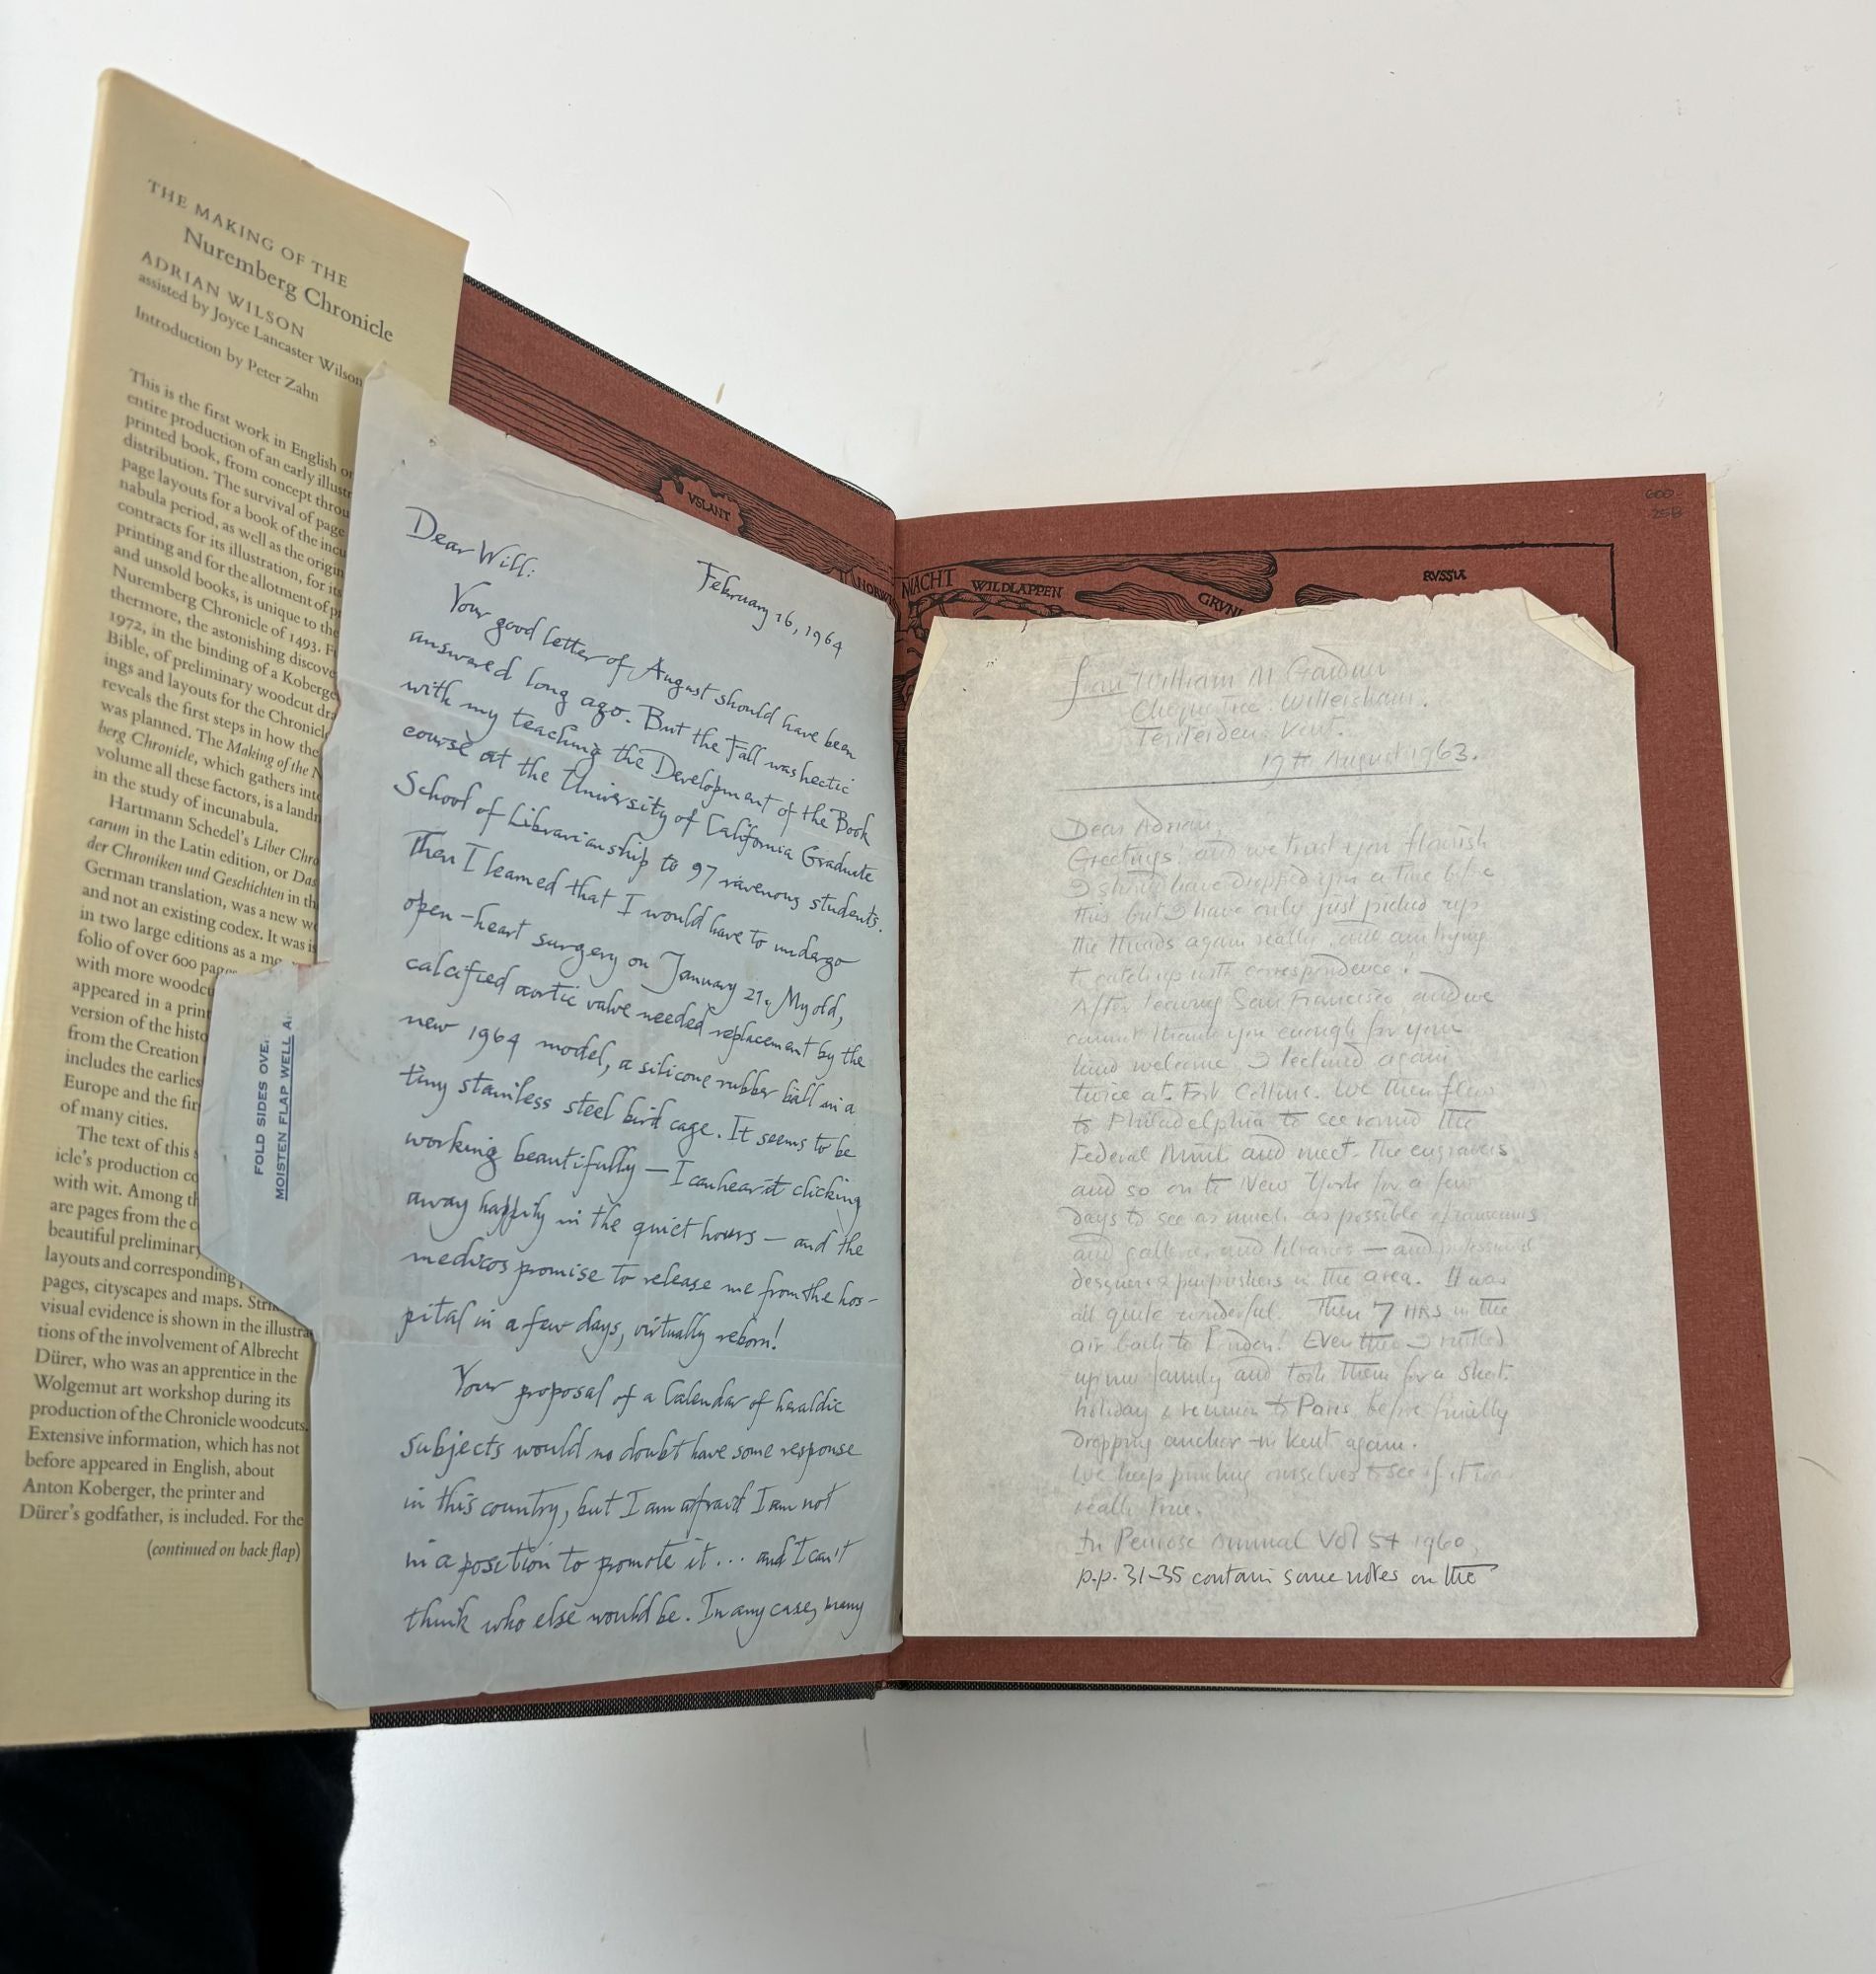 THE MAKING OF THE
Nuremberg Chronicle
ADRIAN WILSON
assisted by Joyce Lancaster Wilson
Introduction by Peter Zahn
This is the first work in English
entire production of an early
printed book, from concept
distribution. The survival of page
page layouts for a book of the
nabula period, as well as the
contracts for its illustration, for its
printing and for the allotment of
and unsold books, is unique to the
Nuremberg Chronicle of 1493.
thermore, the astonishing
1972, in the binding of a
Bible, of preliminary woodcut
ings and layouts for the
reveals the first steps in how the
was planned. The Making of the N
berg Chronicle, which gathers
volume all these factors, is a
in the study of incunabula.
Hartmann Schedel's Liber
carum in the Latin edition, or Das
der Chroniken und Geschichten in
German translation, was a new
and not an existing codex. It was
in two large editions as a
folio of over 600
with more
appeared in a
version of the
from the Creation
includes the
Europe and the
of many cities.
The text of this
icle's production
with wit. Among
are pages from the
beautiful preliminary
layouts and corresponding
pages, cityscapes and maps.
visual evidence is shown in the illustra
tions of the involvement of Albrecht
Dürer, who was an apprentice in the
Wolgemut art workshop during its
production of the Chronicle woodcuts.
Extensive information, which has not
before appeared in English, about
Anton Koberger, the printer and
Dürer's godfather, is included. For the
(continued on back flap)
FOLD SIDES
MOISTEN FLAP WELL
VSLANT
Dear Will:
February 16, 1964
Your good letter of August should have been
answered long ago. But the Fall was hectic
with my teaching the Development of the Book
course at the University of California Graduate
School of Librarianship to 97 ravenous students.
Then I learned that I would have to undergo
open-heart surgery on January 21. My old,
calcified aortic valve needed replacement by the
new 1964 model, a silicone rubber ball in a
tiny stainless steel bird cage. It seems to be
working beautifully — I can hear it clicking
away happily in the quiet hours — and the
medicos promise to release me from the hos-
pital in a few days, virtually reborn!
Your proposal of a Calendar of heraldic
subjects would no doubt have some response
in this country, but I am afraid I am not
in a position to promote it... and I can't
think who else would be. In any case, many
NACHT
WILDLAPPEN
RVSSIA
from William M Gardner
Chequertree. Wittersham.
Tenterden. Kent.
19th August 1963.
Dear Adrian,
Greetings! and we trust you flourish
I should have dropped you a line before
this but I have only just picked up
the threads again really, and am trying
to catch up with correspondence!
After leaving San Francisco, and we
cannot thank you enough for your
kind welcome, I lectured again
twice at Fort Collins. We then flew
to Philadelphia to see round the
Federal Mint and meet the engravers
and so on to New York for a few
days to see as much as possible of museums
and galleries and libraries — and professional
designers & publishers in the area. It was
all quite wonderful. Then 7 HRS in the
air back to London! Even then I
up my family and took them for a short
holiday & reunion to Paris before finally
dropping anchor in Kent again.
We keep pinching ourselves to see if it was
really true.
In Penrose Annual Vol 54 1960,
p.p. 31-35 contain some notes on the